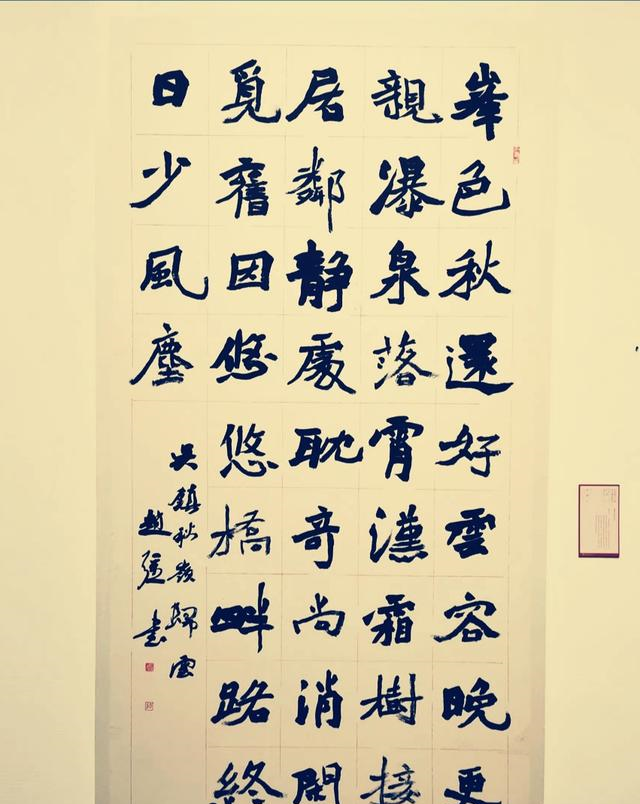 峯色秋還好雲容晚更
親瀑泉落霄漢霜樹接
居鄰靜處耽奇尚消閒
覓舊因悠悠橋畔路終
日少風塵
吳鎮秋嶺歸雲
趙書